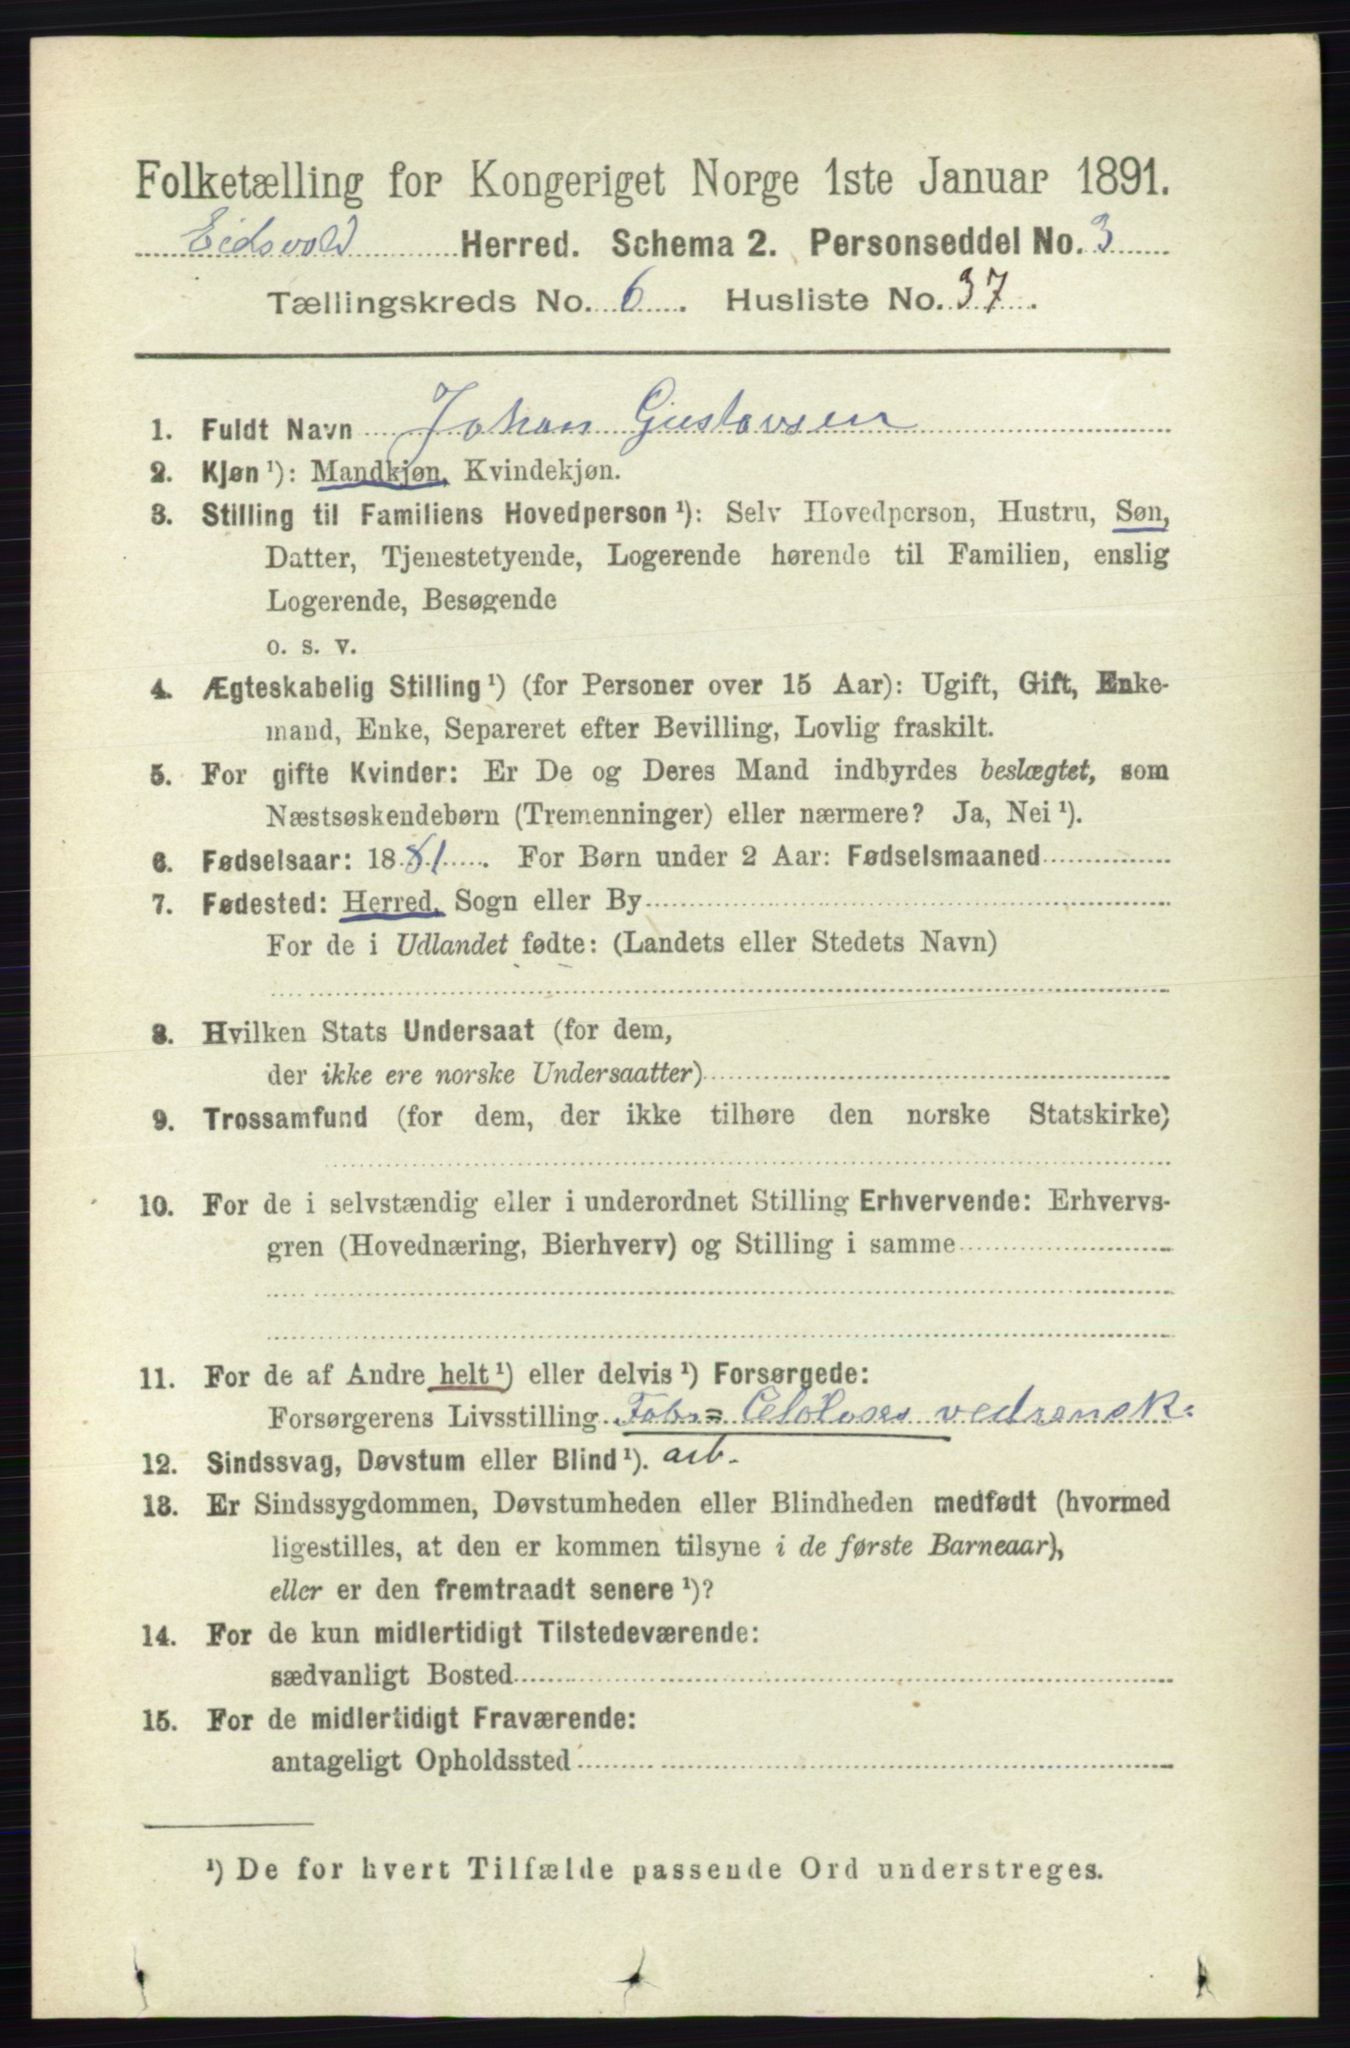 Folketælling for Kongeriget Norge 1ste Januar 1891.
Eidsvold Herred. Schema 2. Personseddel No. 3
Tællingskreds No. 6. Husliste No. 37.
1. Fuldt Navn Johan Gustavsen
2. Kjøn ¹): Mandkjøn, Kvindekjøn.
3. Stilling til Familiens Hovedperson ¹): Selv Hovedperson, Hustru, Søn,
Datter, Tjenestetyende, Logerende hørende til Familien, enslig
Logerende, Besøgende
o. s. v.
4. Ægteskabelig Stilling ¹) (for Personer over 15 Aar): Ugift, Gift, Enke-
mand, Enke, Separeret efter Bevilling, Lovlig fraskilt.
5. For gifte Kvinder: Er De og Deres Mand indbyrdes beslægtet, som
Næstsøskendebørn (Tremenninger) eller nærmere? Ja, Nei ¹).
6. Fødselsaar: 1881. For Børn under 2 Aar: Fødselsmaaned
7. Fødested: Herred, Sogn eller By
For de i Udlandet fødte: (Landets eller Stedets Navn)
8. Hvilken Stats Undersaat (for dem,
der ikke ere norske Undersaatter)
9. Trossamfund (for dem, der ikke tilhøre den norske Statskirke)
10. For de i selvstændig eller i underordnet Stilling Erhvervende: Erhvervs-
gren (Hovednæring, Bierhverv) og Stilling i samme
11. For de af Andre helt ¹) eller delvis ¹) Forsørgede:
Forsørgerens Livsstilling Fabr= Celoloses vedrensk:
12. Sindssvag, Døvstum eller Blind ¹). arb.
13. Er Sindssygdommen, Døvstumheden eller Blindheden medfødt (hvormed
ligestilles, at den er kommen tilsyne i de første Barneaar),
eller er den fremtraadt senere ¹)?
14. For de kun midlertidigt Tilstedeværende:
sædvanligt Bosted
15. For de midlertidigt Fraværende:
antageligt Opholdssted
¹) De for hvert Tilfælde passende Ord understreges.